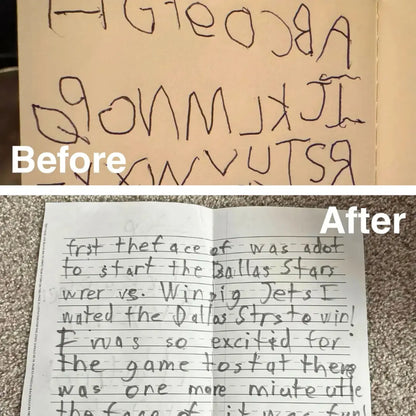 ABCDeFGH
IJKLMNOPQ
RSTUVWX
Before
After
frst theface of was adot
to start the Ballas Stars
wrer vs. Winpig Jets I
wated the Dallas Strs to win!
I was so excited for
the game tostat there
was one more miute utle
the face of it was